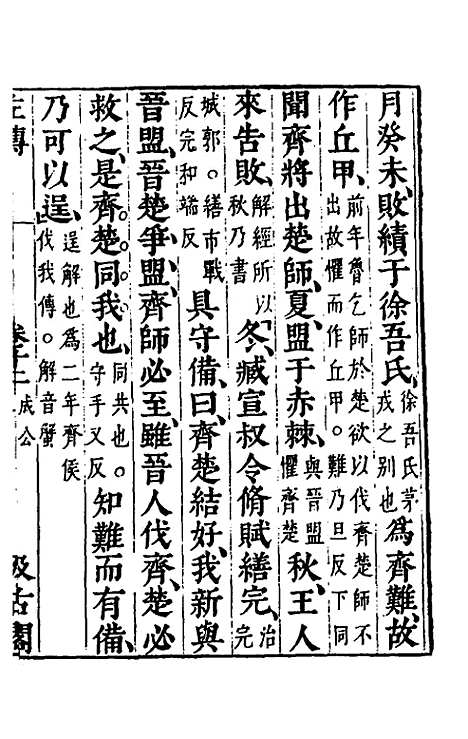 月癸未敗績于徐吾氏徐吾氏茅戎之別也為齊難故
作丘甲前年魯乞師於楚欲以伐齊楚師不出故懼而作丘甲。難乃旦反下同
聞齊將出楚師夏盟于赤棘與晉盟懼齊楚秋王人
來告敗解經所以秋乃書冬臧宣叔令脩賦繕完治完
城郭。繕市戰反完和端反具守備曰齊楚結好我新與
晉盟晉楚爭盟齊師必至雖晉人伐齊楚必
救之是齊楚同我也同共也。守手又反。知難而有備
乃可以逞逞解也為二年齊侯伐我傳。解音蟹
左傳 卷十二 成公 汲古閣